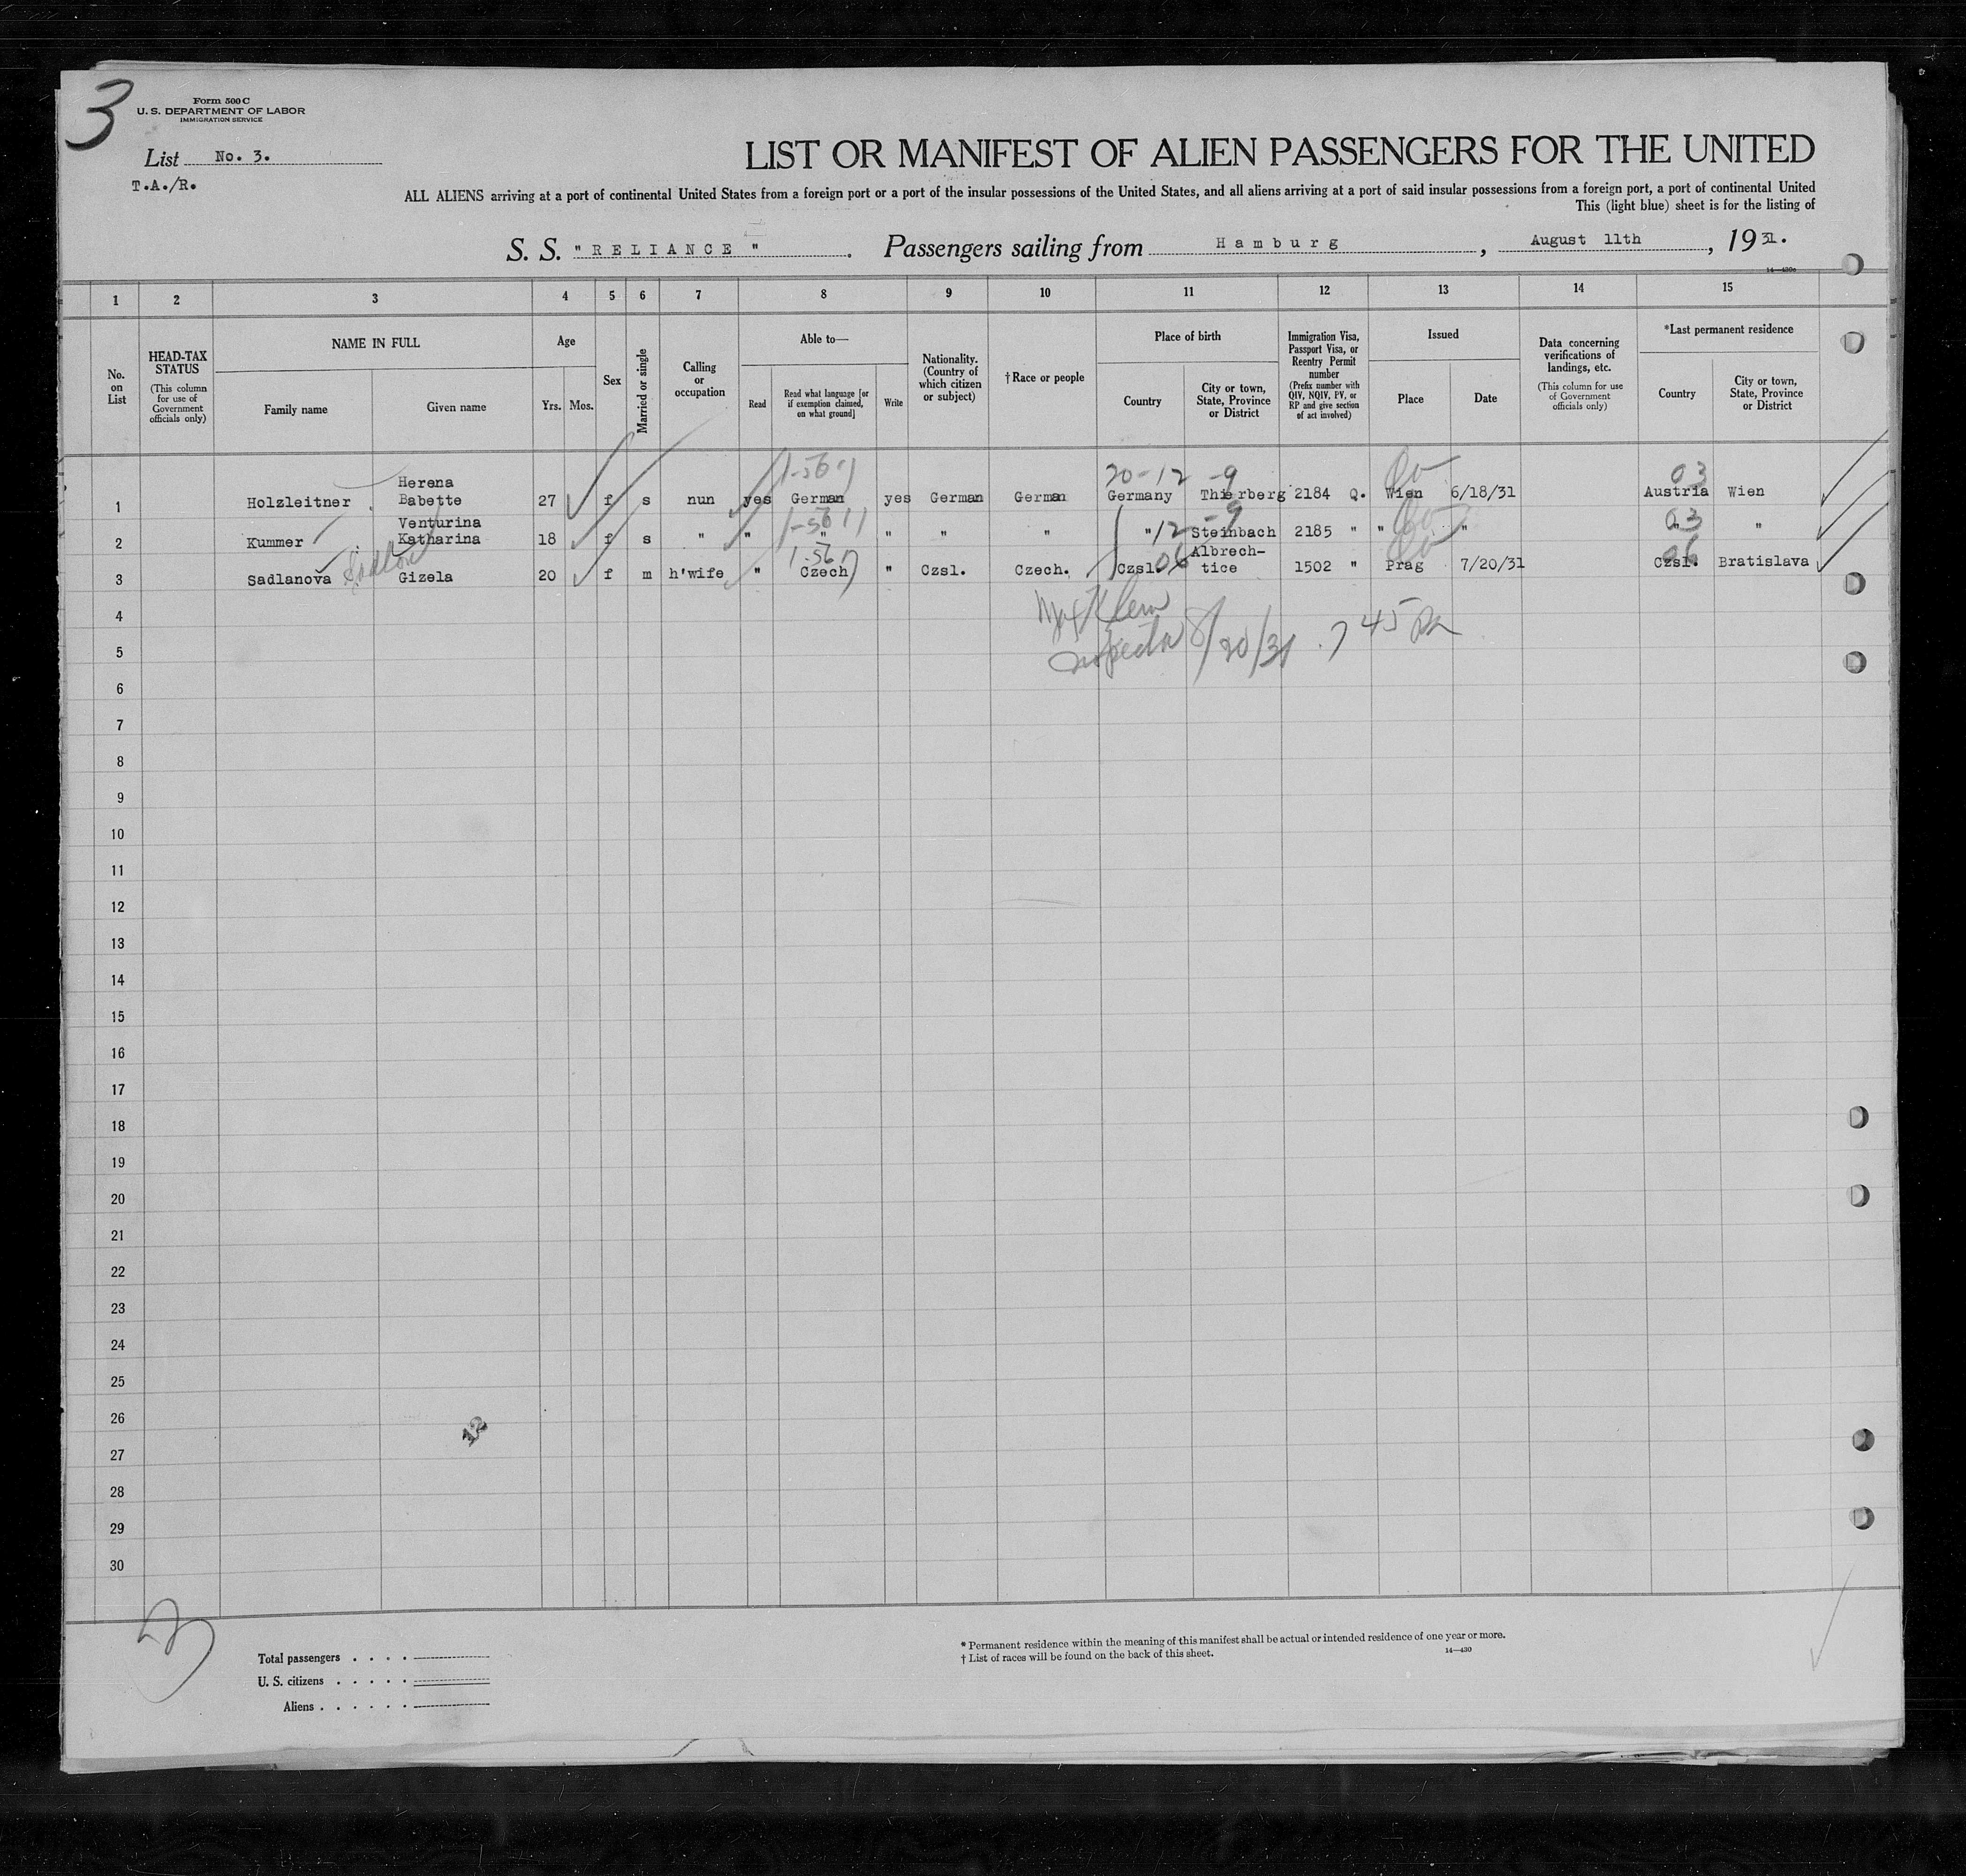 3
Form 500 C
U. S. DEPARTMENT OF LABOR
IMMIGRATION SERVICE
List No. 3.
T.A./R.
LIST OR MANIFEST OF ALIEN PASSENGERS FOR THE UNITED
ALL ALIENS arriving at a port of continental United States from a foreign port or a port of the insular possessions of the United States, and all aliens arriving at a port of said insular possessions from a foreign port, a port of continental United
This (light blue) sheet is for the listing of
S. S. " RELIANCE ". Passengers sailing from Hamburg, August 11th, 1931.
14—430c
1 2 3 4 5 6 7 8 9 10 11 12 13 14 15
No. on List
HEAD-TAX STATUS (This column for use of Government officials only)
NAME IN FULL
Family name
Given name
Age
Yrs. Mos.
Sex
Married or single
Calling or occupation
Able to—
Read
Read what language [or if exemption claimed, on what ground]
Write
Nationality. (Country of which citizen or subject)
† Race or people
Place of birth
Country
City or town, State, Province or District
Immigration Visa, Passport Visa, or Reentry Permit number (Prefix number with QIV, NQIV, PV, or RP and give section of act involved)
Issued
Place
Date
Data concerning verifications of landings, etc. (This column for use of Government officials only)
*Last permanent residence
Country
City or town, State, Province or District
20-12 -9 03
1 Holzleitner Herena Babette 27 f s nun yes German yes German German Germany Thierberg 2184 Q. Wien 6/18/31 Austria Wien
12 -9 03
2 Kummer Venturina Katharina 18 f s " " " " " " " Steinbach 2185 " " " " "
06 06
3 Sadlanova Gizela 20 f m h'wife " Czech " Czsl. Czech. Czsl. Albrech-tice 1502 " Prag 7/20/31 Czsl. Bratislava
4
5 8/20/31 . 7 45
6
7
8
9
10
11
12
13
14
15
16
17
18
19
20
21
22
23
24
25
26
12
27
28
29
30
3
Total passengers . . . .
U. S. citizens . . . . .
Aliens . . . . . .
* Permanent residence within the meaning of this manifest shall be actual or intended residence of one year or more.
† List of races will be found on the back of this sheet.
14—430